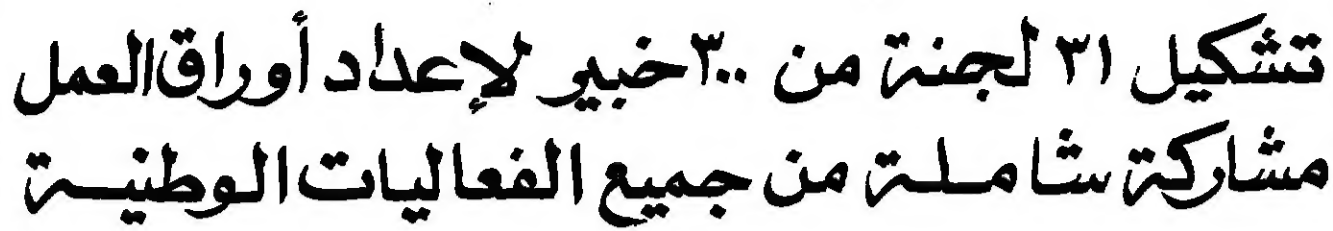 تشكيل ٣١ لجنة من ٣٠٠ خبير لإعداد أوراق العمل
مشاركة شاملة من جميع الفعاليات الوطنية